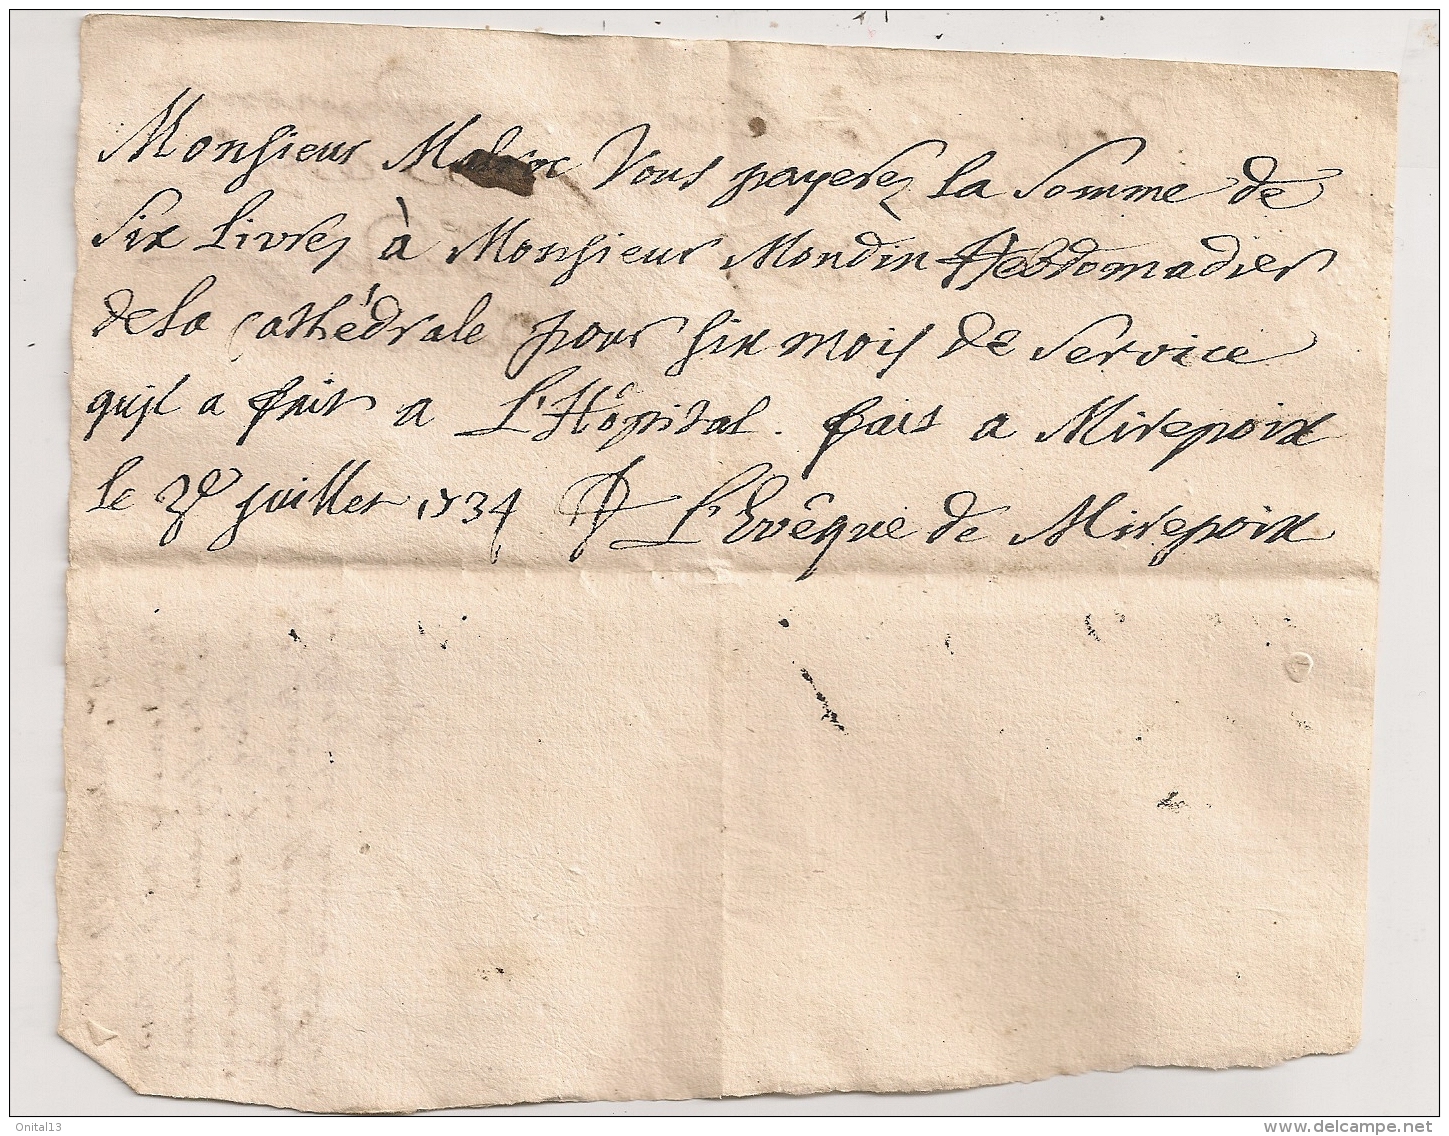 Monsieur Vous payerez la Somme de
Six Livres à Monsieur Mondin Hebdomadier
de la Cathédrale pour six mois de Service
quil a fait a L'Hôpital. fait a Mirepoix
le 3e juillet 1734 L'Evêque de Mirepoix
Onital13
delcampe.net